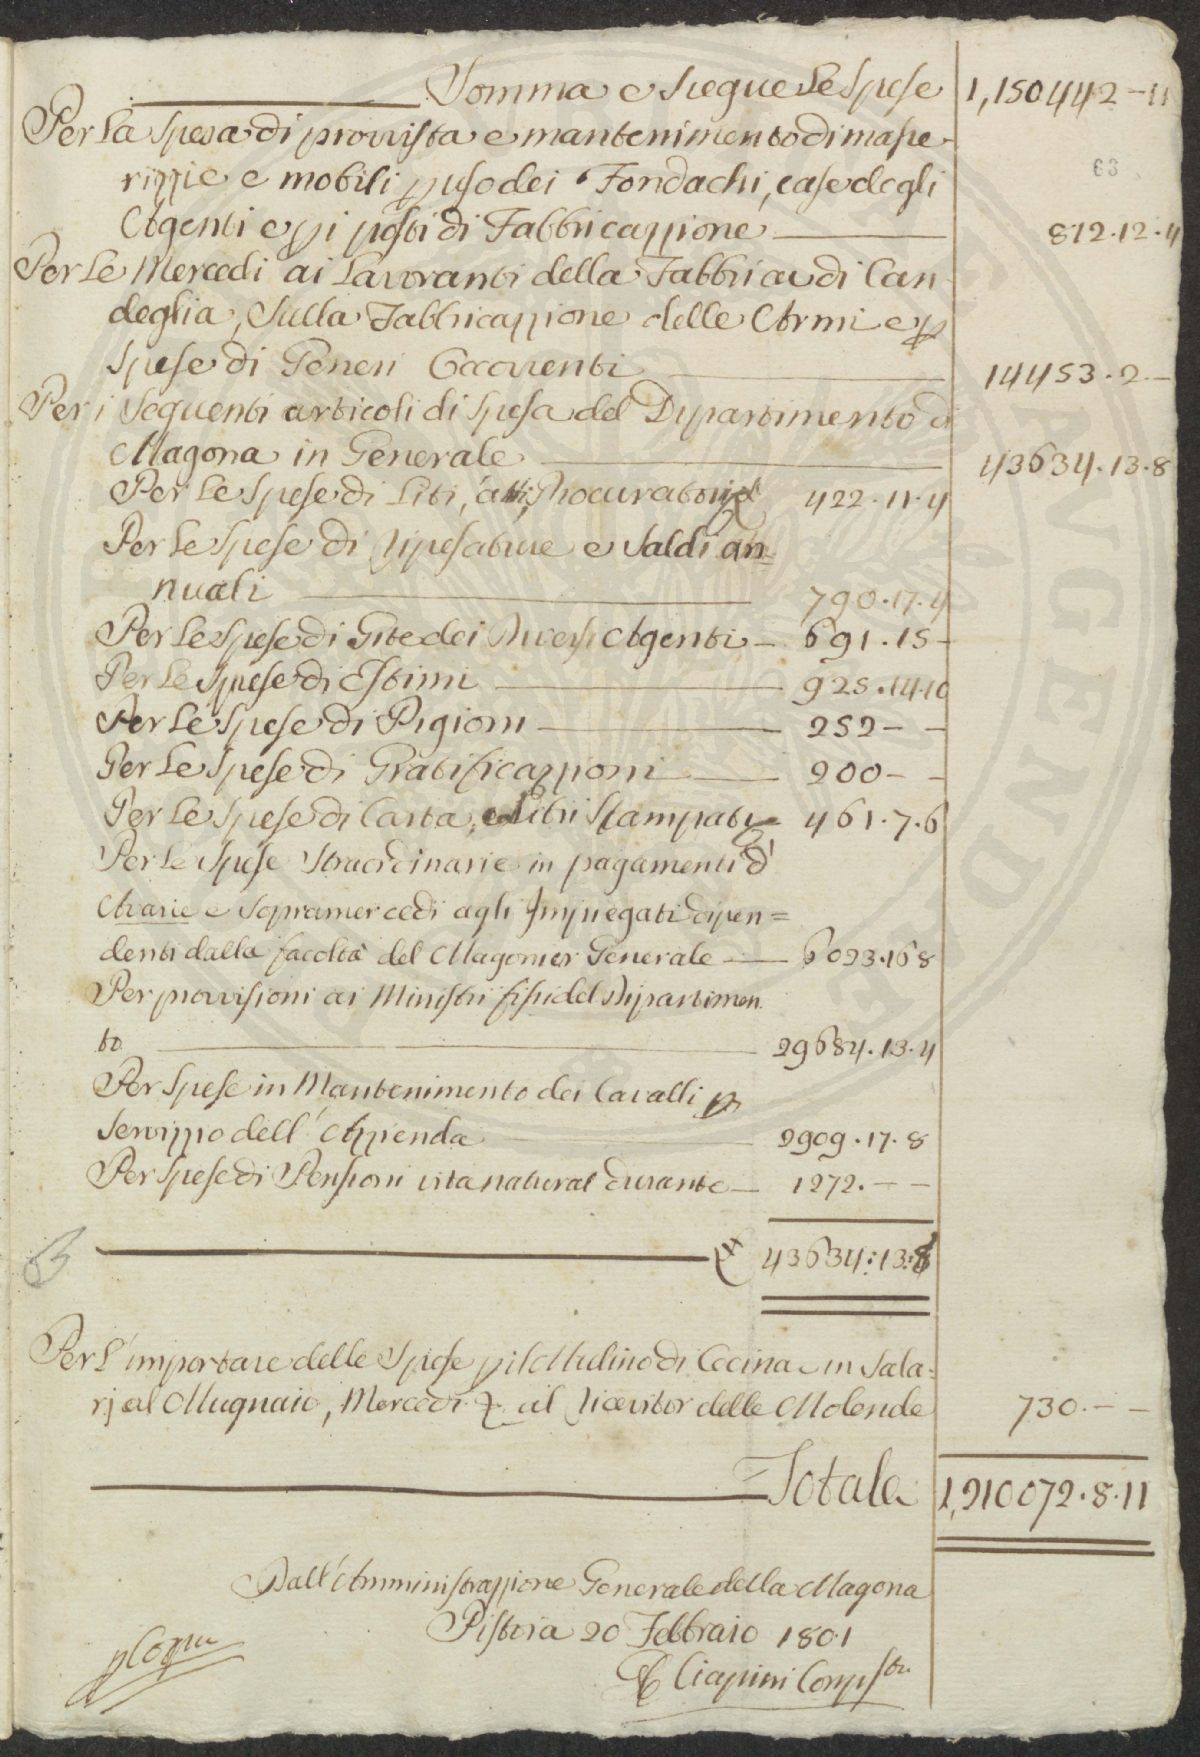 Somma e Siegue le Spese 1,150442 – 11
63
Per la spesa di provvista e mantenimento di masse-
rizzie e mobili p uso dei Fondachi, case degli
Agenti e p i posti di Fabbricazzione 812.12.4
Per le Mercedi ai Lavoranti della Fabbrica di Can-
deglia, Sulla Fabbricazzione delle Armi e p
Spese di Generi Occorrenti 14453.2.–
Per i Seguenti articoli di Spesa del Dipartimento di
Magona in Generale 43634.13.8
Per le Spese di Liti, atti, Procuratori & 422.11.4
Per le Spese di Ripesature e Saldi an=
nuali 790.17.4
Per le Spese di Gite dei Diversi Agenti – 691.15 –
Per le Spese di Estimi 925.14.10
Per le Spese di Pigioni 252 – –
Per le Spese di Gratificazzioni 200 – –
Per le Spese di Carta, e Libri Stampati 461.7.6
Per le Spese Straordinarie in pagamenti d'
Ararie e Sopramercedi agli Impiegati dipen=
denti dalla facoltà del Magonier Generale 6023.16.8
Per provvisioni ai Ministri fissi del Dipartimen
to 29684.13.4
Per Spese in Mantenimento dei Cavalli p
Servizzo dell' Azzienda 2909.17.8
Per Spese di Pensioni vita natural durante 1272. – –
43634:13:8
Per l'importare delle Spese p il Mulino di Cecina in Sala-
rj al Mugnaio, Mercedi & al Ricevitor delle Molende 730. – –
Totale 1,210072.8.11
Dall' Amministrazzione Generale della Magona
Pistoia 20 Febbraio 1801
p Copia
Ciapini Comp.